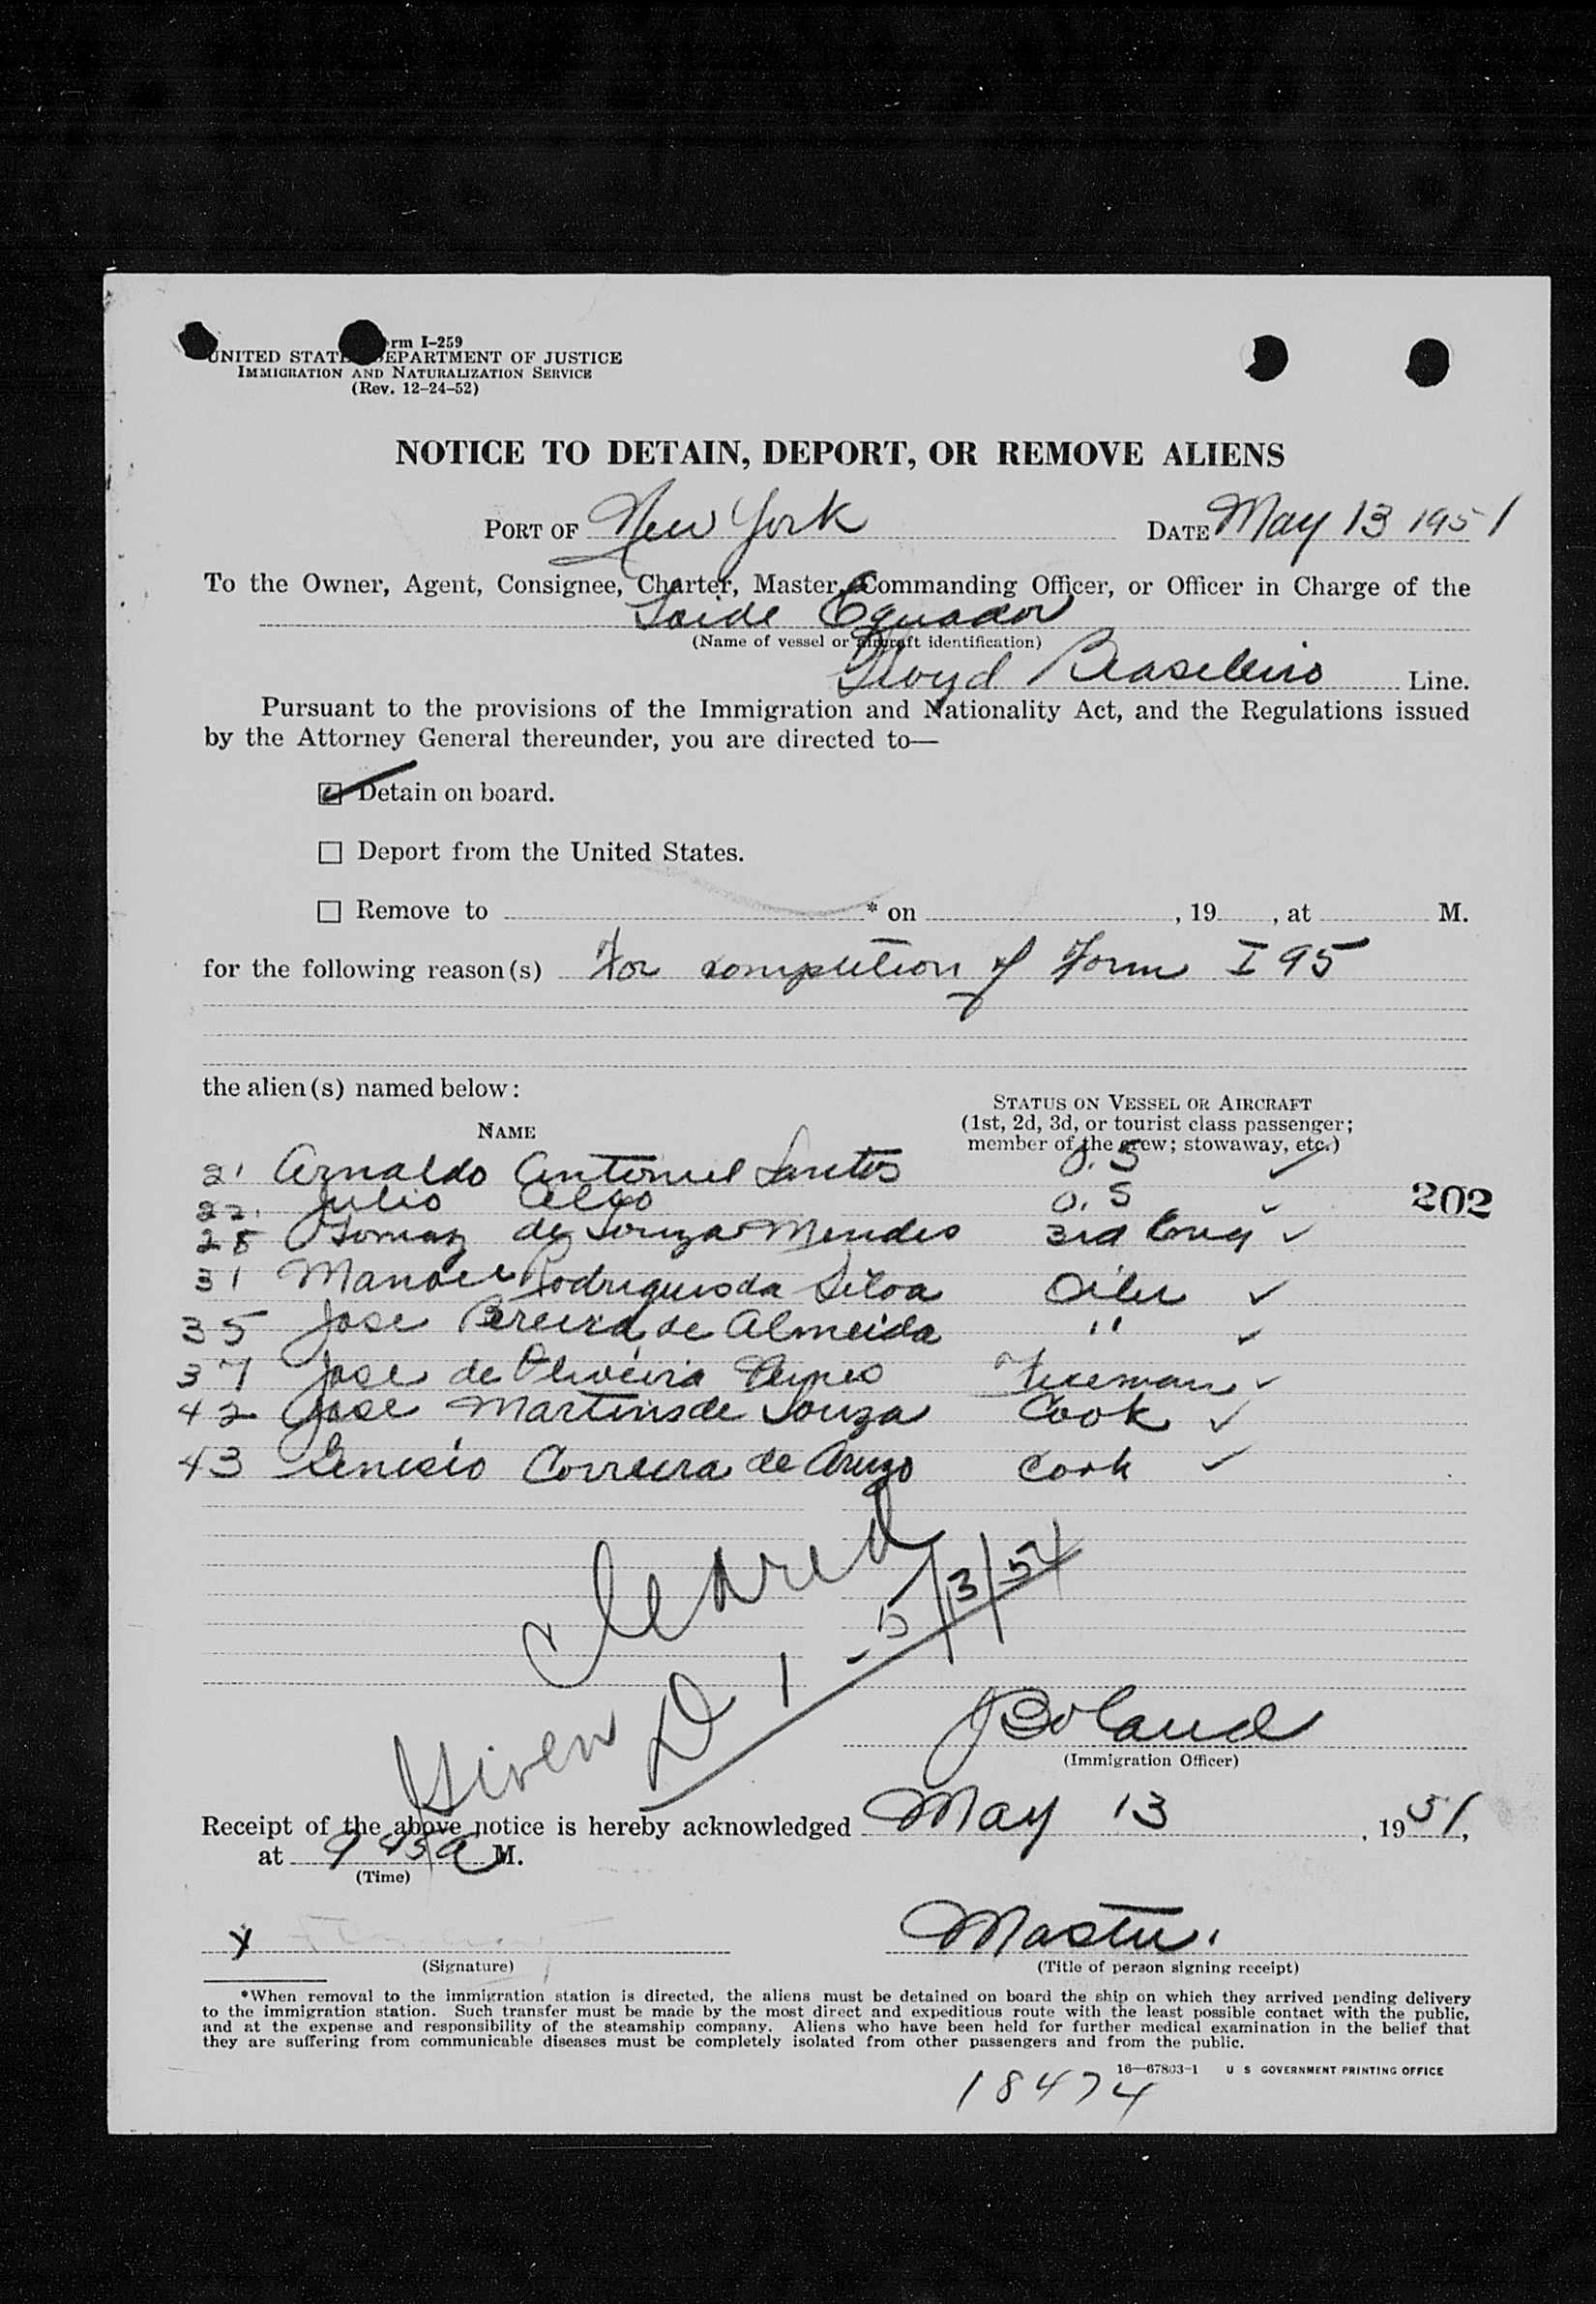 rm I-259
UNITED STATE DEPARTMENT OF JUSTICE
IMMIGRATION AND NATURALIZATION SERVICE
(Rev. 12-24-52)
NOTICE TO DETAIN, DEPORT, OR REMOVE ALIENS
PORT OF New York DATE May 13 1951
To the Owner, Agent, Consignee, Charter, Master, Commanding Officer, or Officer in Charge of the
Loide Equador
(Name of vessel or aircraft identification)
Lloyd Brasileiro Line.
Pursuant to the provisions of the Immigration and Nationality Act, and the Regulations issued
by the Attorney General thereunder, you are directed to—
Detain on board.
Deport from the United States.
Remove to * on , 19 , at M.
for the following reason(s) For completion of Form I 95
the alien(s) named below:
NAME
STATUS ON VESSEL OR AIRCRAFT
(1st, 2d, 3d, or tourist class passenger;
member of the crew; stowaway, etc.)
21 Arnaldo Santos O.S
22. Julio O.S
202
28 de Souza Mendes 3rd Eng
31 Manoel Rodrigues da Silva Oiler
35 Jose Pereira de Almeida "
37 Jose de Oliveira Fireman
42 Jose Martins de Souza Cook
43 Genesio Correira de Cook
Cleared
Given D 1 - 5/13/54
J Boland
(Immigration Officer)
Receipt of the above notice is hereby acknowledged May 13, 1951,
at 9 45 a M.
(Time)
x
(Signature)
Master.
(Title of person signing receipt)
*When removal to the immigration station is directed, the aliens must be detained on board the ship on which they arrived pending delivery
to the immigration station. Such transfer must be made by the most direct and expeditious route with the least possible contact with the public,
and at the expense and responsibility of the steamship company. Aliens who have been held for further medical examination in the belief that
they are suffering from communicable diseases must be completely isolated from other passengers and from the public.
16—67803-1 U S GOVERNMENT PRINTING OFFICE
18474